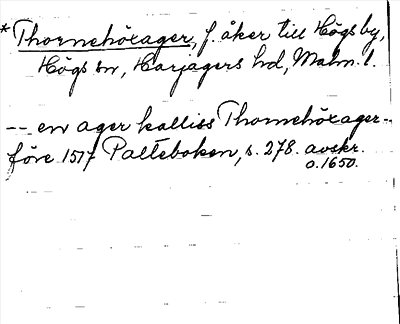 *Thornehöxager, f. åker till Högs by,
Högs sn, Harjagers hd, Malm. l.
-- en ager kalliss Thornehöxager --
före 1517 Palteboken, s. 278. avskr.
o. 1650.